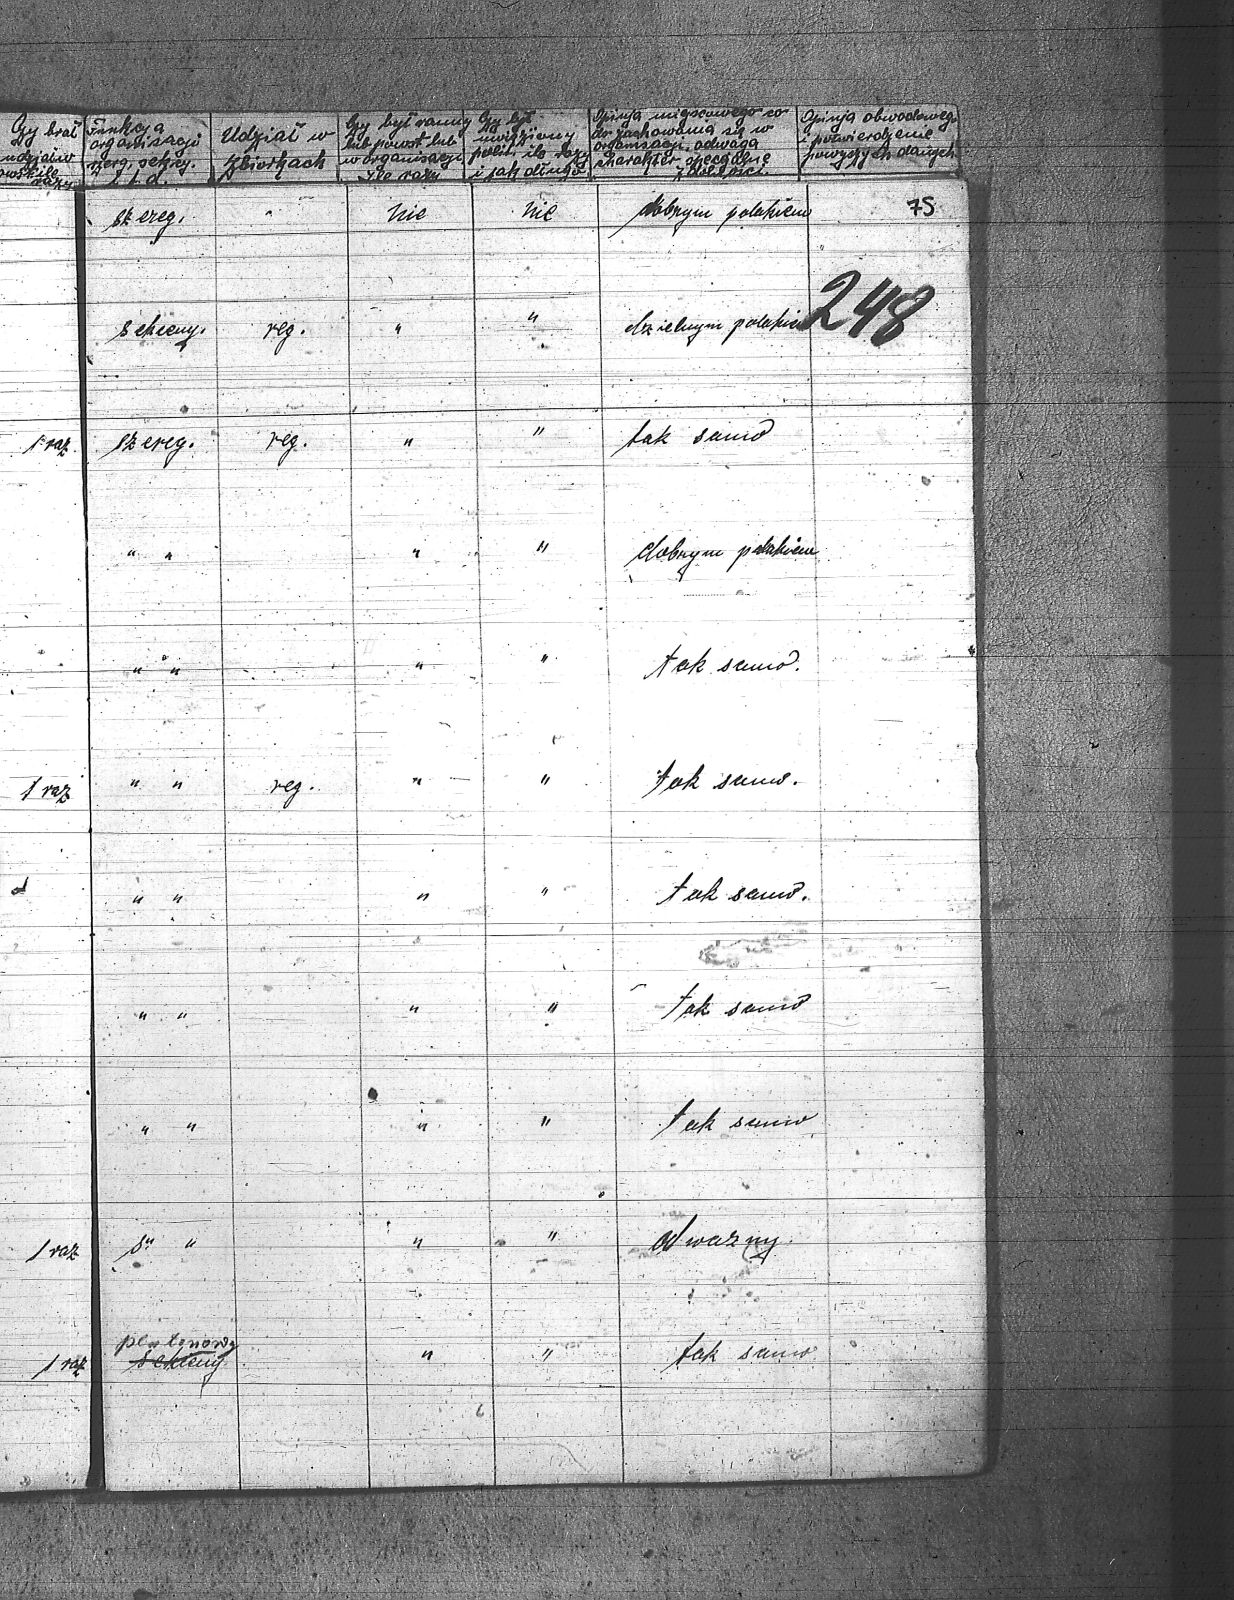 Czy brał
udział w
Funkcja
organizacji
szereg. sekcyj.
i.t.d.
Udział w
Zbiórkach
Czy był ranny
lub powst lub
w organizacji
Ile razy
Czy był
więziony
polit. ile razy
i jak długo
Opinja miejscowego co
do zachowania się w
organizacji, odwaga
charakter specjalne
zdolności.
Opinja obwodowego
i potwierdzenie
powyższych danych
szereg. " nie nie dobrym polakiem 75
sekcny. reg. " " dzielnym polakiem 248
1 raz szereg. reg. " " tak samo
" " " " dobrym polakiem
" " " " tak samo.
1 raz " " reg. " " tak samo.
" " " " tak samo.
" " " " tak samo
" " " " tak samo
1 raz " " " " odważny.
plutonowy
1 raz sekcny " " tak samo